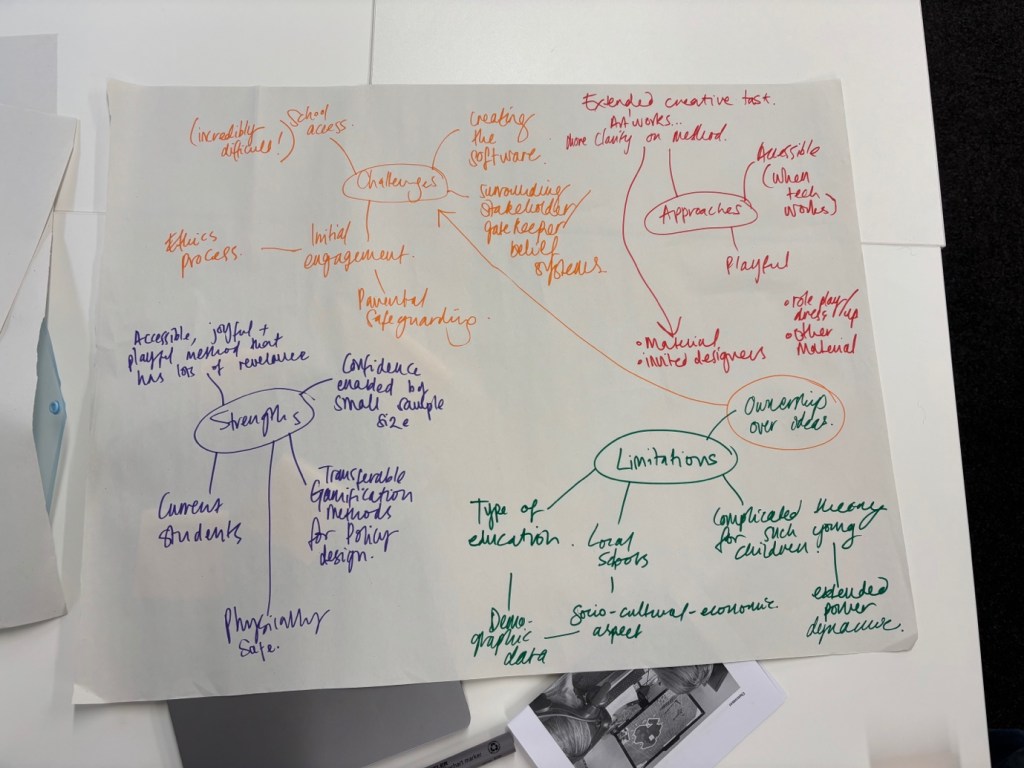 School
access.
(incredibly
difficult!)
Challenges
creating
the
software.
surrounding
stakeholder/
gatekeeper
belief
systems
Initial
engagement.
Ethics
process.
Parental
Safeguarding.
Extended creative task.
Artworks...
more clarity on method.
Approaches
Accessible
(when
tech
works)
Playful
• Material
• invited designers
• role play/
dress up
• other
Material
Accessible, joyful +
playful method that
has lots of relevance
Strengths
Confidence
enabled by
small sample
size
Current
students
Physically
Safe.
Transferable
Gamification
methods
for Policy
design.
Ownership
over ideas.
Limitations
Type of
education.
Local
Schools
Complicated theory
for such young
children!
Demo-
graphic
data
Socio-cultural-economic
aspect
extended
power
dynamic.